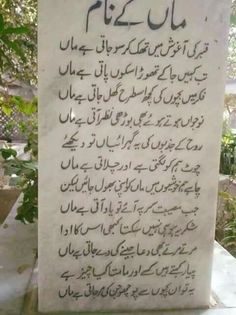 ماں کے نام
قبر کی آغوش میں تھک کر سو جاتی ہے ماں
تب کہیں جا کے تھوڑا سکوں پاتی ہے ماں
فکر میں بچوں کی کچھ اسطرح گھل جاتی ہے ماں
نوجواں ہوتے ہوئے بھی بوڑھی نظر آتی ہے ماں
روح کے جذبوں کی یہ گہرائیاں تو دیکھئے
چوٹ ہم کو لگتی ہے اور چلاتی ہے ماں
چاہے ہم خوشیوں میں ماں کو بھول جائیں لیکن
جب مصیبت سر پہ آئے تو یاد آتی ہے ماں
شکریہ ہو ہی نہیں سکتا کبھی اس کا ادا
مرتے مرتے بھی دعا جینے کی دے جاتی ہے ماں
پیار کہتے ہیں کسے اور مامتا کیا چیز ہے
یہ تو ان بچوں سے پوچھو جن کی مر جاتی ہے ماں